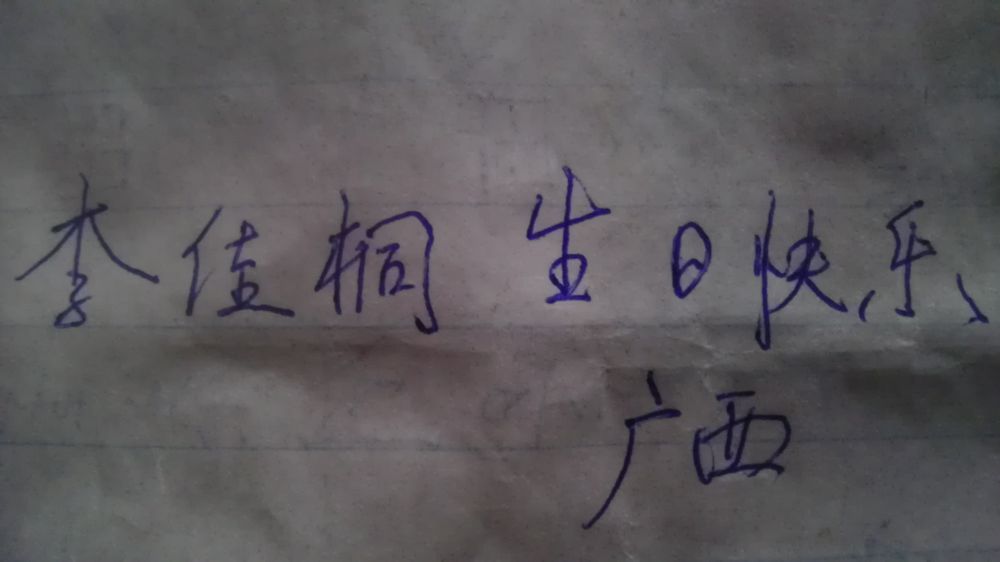 李佳桐 生日快乐
广西